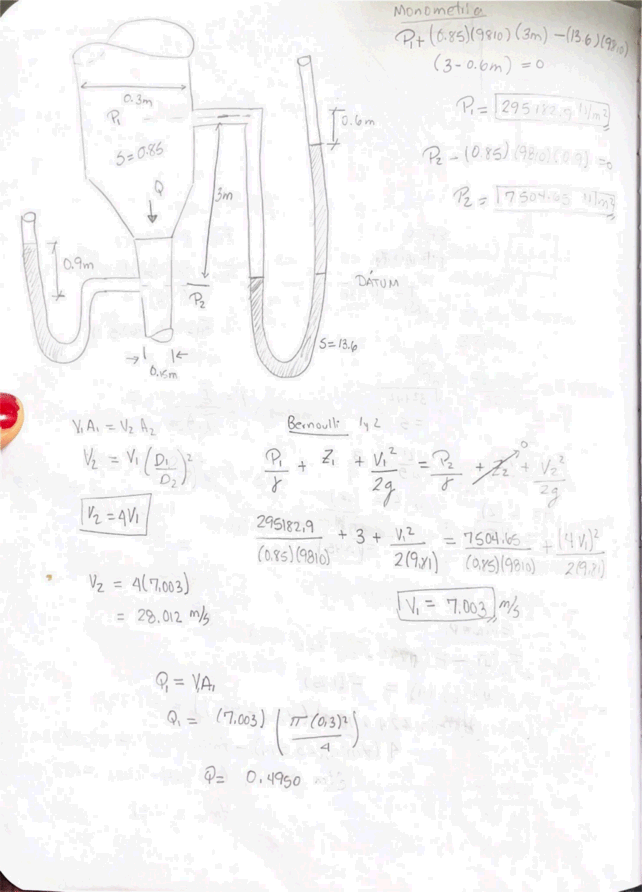 Monometria
P₁+(0.85)(9810)(3m)-(13.6)(9810)
(3-0.6m) = 0
P₁ = 295182.9 N/m²
P₂ - (0.85)(9810)(0.9) = 0
P₂ = 7504.65 N/m²
0.3m
P₁
S=0.85
Q
0.6m
3m
0.9m
P₂
DÁTUM
S=13.6
0.15m
V₁A₁ = V₂A₂
V₂ = V₁(D₁/D₂)²
V₂ = 4V₁
V₂ = 4(7.003)
= 28.012 m/s
Bernoulli 1y2
P₁/γ + Z₁ + V₁²/2g = P₂/γ + Z₂ 0 + V₂²/2g
295182.9/(0.85)(9810) + 3 + V₁²/2(9.81) = 7504.65/(0.85)(9810) + (4V₁)²/2(9.81)
V₁ = 7.003 m/s
Q₁ = V₁A₁
Q₁ = (7.003)(π(0.3)²/4)
Q = 0.4950